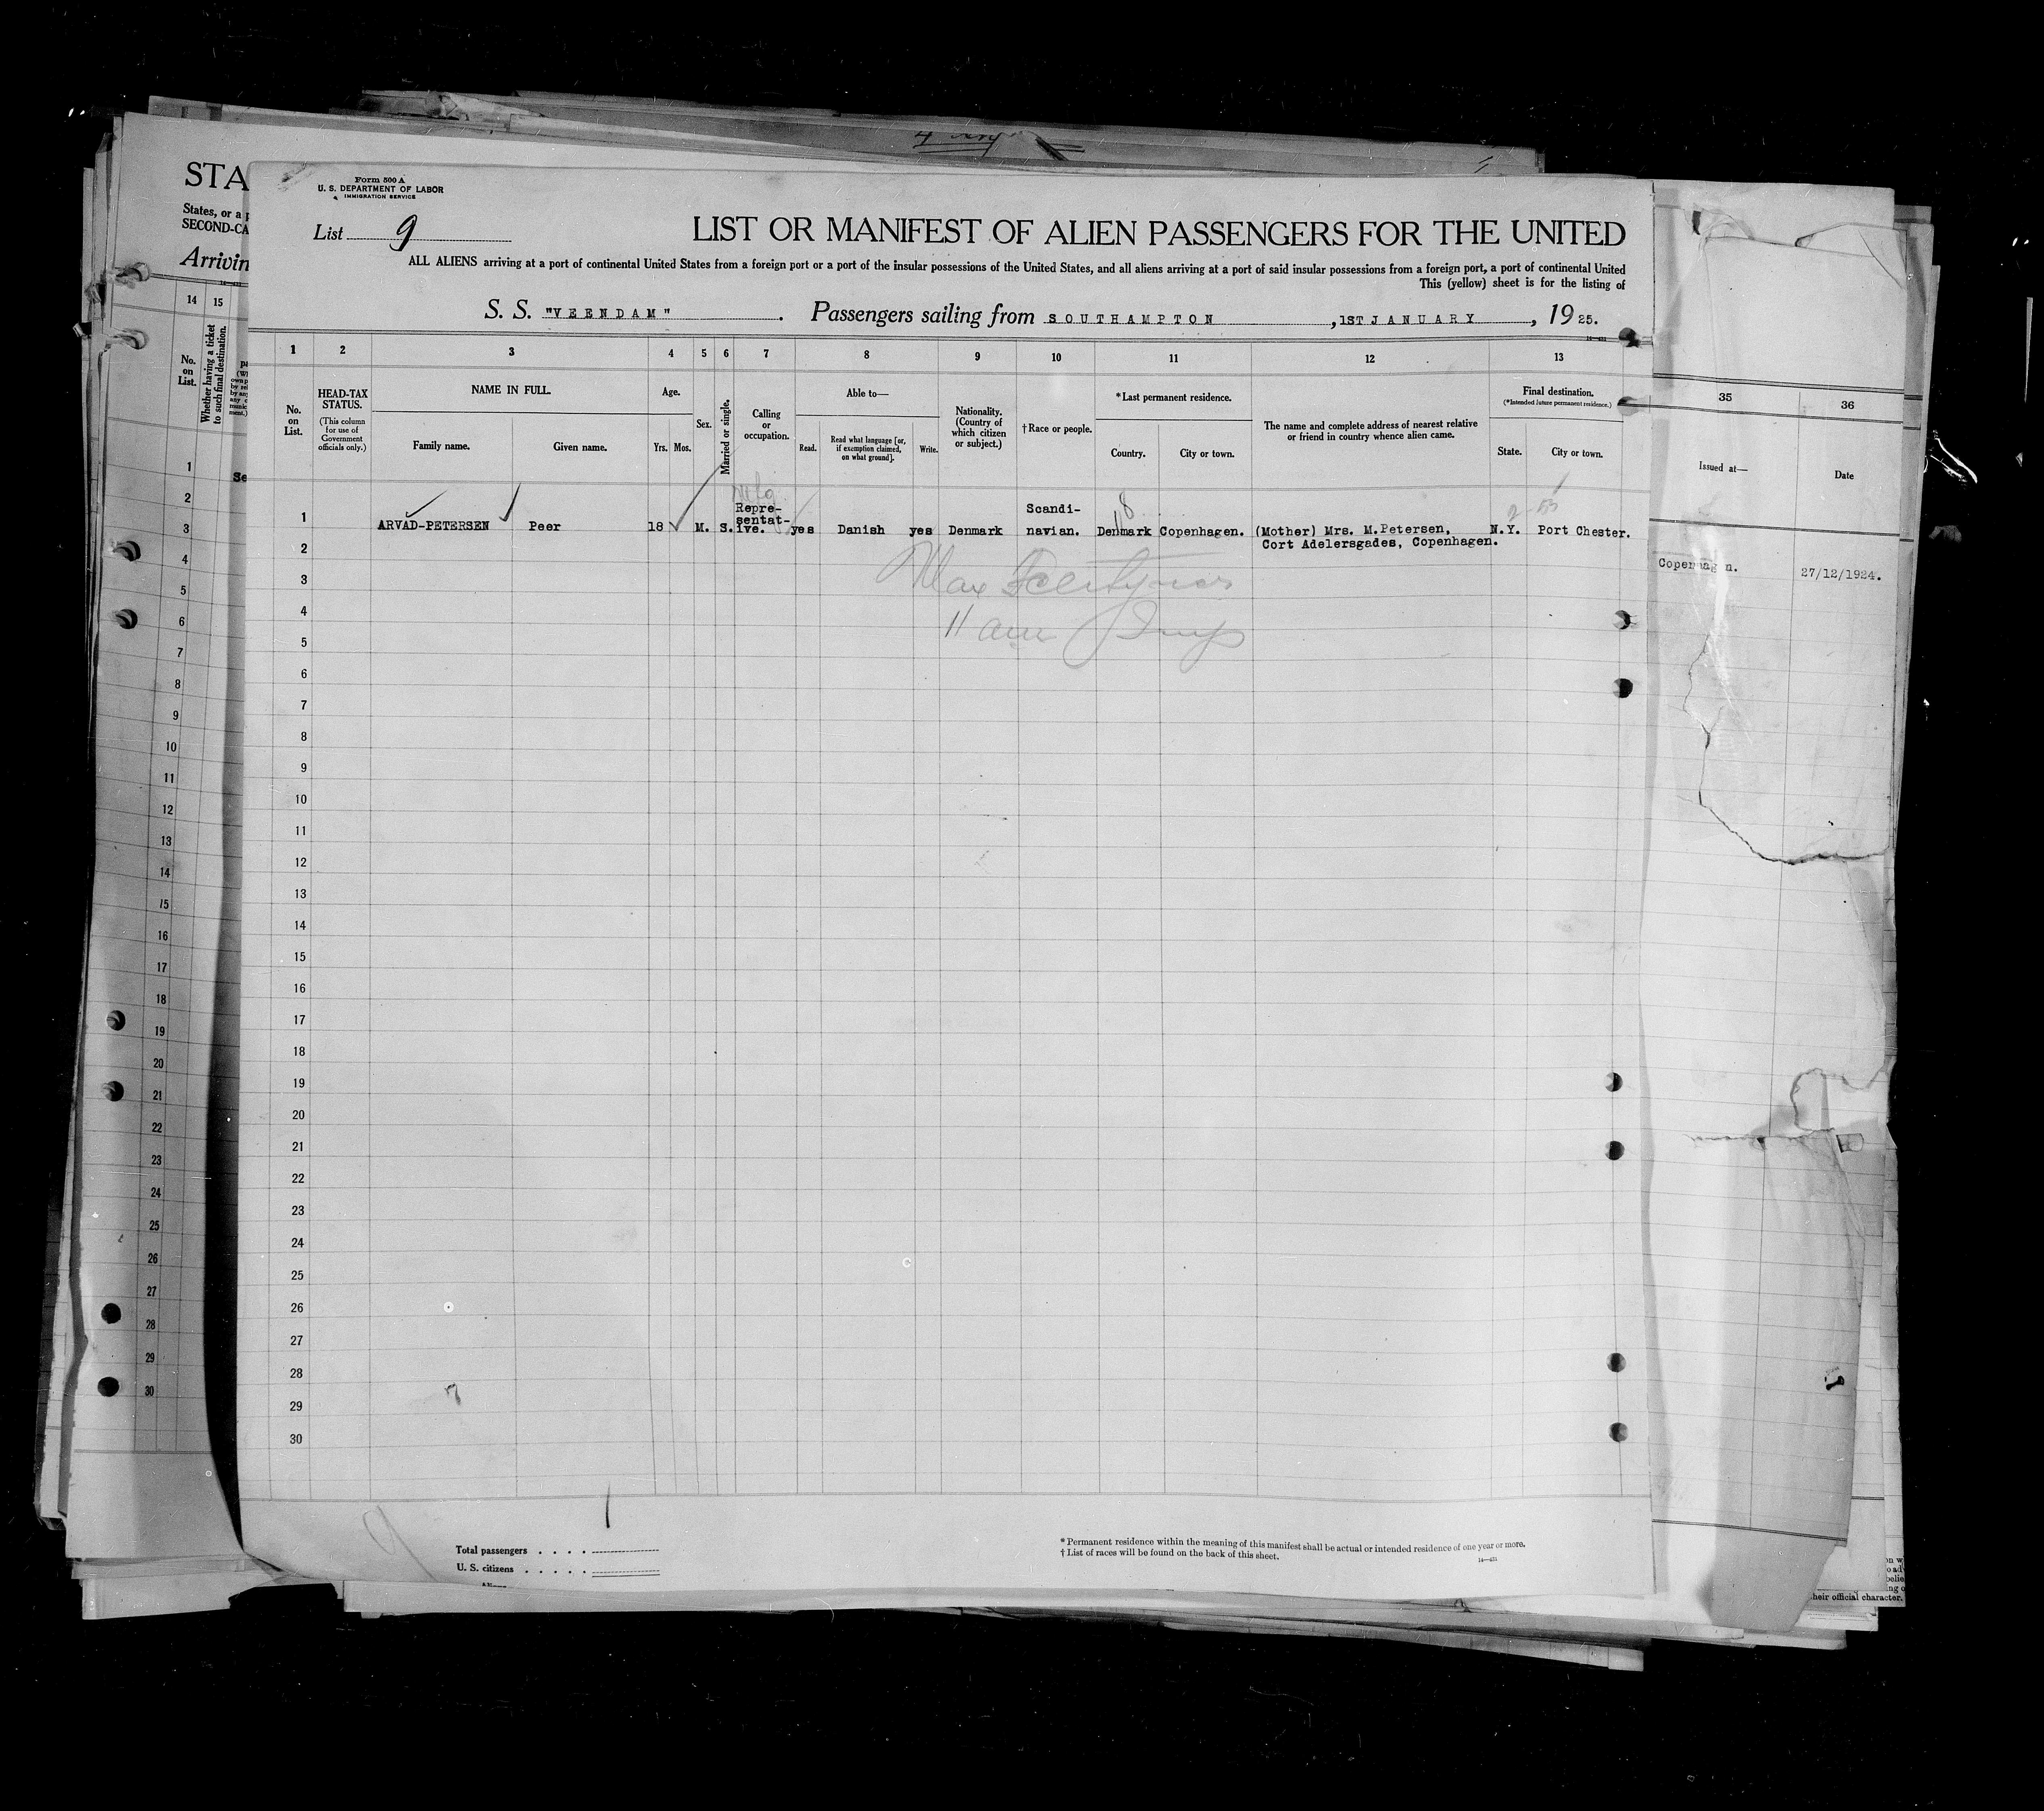 STA
States, or a p
SECOND-CA
Arrivin
14 15
No. on List.
Whether having a ticket to such final destination.
Form 500 A
U. S. DEPARTMENT OF LABOR
IMMIGRATION SERVICE
List 9
LIST OR MANIFEST OF ALIEN PASSENGERS FOR THE UNITED
ALL ALIENS arriving at a port of continental United States from a foreign port or a port of the insular possessions of the United States, and all aliens arriving at a port of said insular possessions from a foreign port, a port of continental United
This (yellow) sheet is for the listing of
S. S. "VEENDAM". Passengers sailing from SOUTHAMPTON, 1ST JANUARY, 1925.
1 2 3 4 5 6 7 8 9 10 11 12 13
No. on List.
HEAD-TAX STATUS.
(This column for use of Government officials only.)
NAME IN FULL.
Family name. Given name.
Age.
Yrs. Mos.
Sex.
Married or single.
Calling or occupation.
Able to—
Read. Read what language [or, if exemption claimed, on what ground]. Write.
Nationality. (Country of which citizen or subject.)
†Race or people.
*Last permanent residence.
Country. City or town.
The name and complete address of nearest relative or friend in country whence alien came.
Final destination.
(*Intended future permanent residence.)
State. City or town.
35 36
Issued at— Date
1 ARVAD-PETERSEN Peer 18 M. S. Repre-sentat-ive. yes Danish yes Denmark Scandi-navian. Denmark Copenhagen. (Mother) Mrs. M.Petersen, N.Y. Port Chester.
Cort Adelersgades, Copenhagen.
Copenhagen. 27/12/1924.
2
3
4
5
6
7
8
9
10
11
12
13
14
15
16
17
18
19
20
21
22
23
24
25
26
27
28
29
30
Total passengers
U. S. citizens
*Permanent residence within the meaning of this manifest shall be actual or intended residence of one year or more.
†List of races will be found on the back of this sheet.
heir official character.